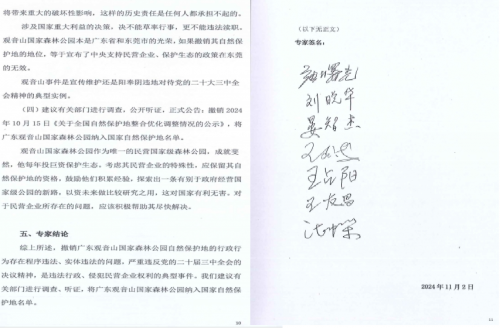 将带来重大的破坏性影响，这样的历史责任是任何人都承担不起的。
涉及国家重大利益的决策，决不能草率行事，更不能违法渎职。
观音山国家森林公园本是广东省和东莞市的光荣，如果撤销其自然保
护地的地位，等于宣布了中央支持民营企业、保护生态的政策在东莞
的无效。
观音山事件是宣传维护还是阳奉阴违地对待党的二十大三中全
会精神的典型实例。
（四）建议有关部门进行调查，公开听证，正式公告：撤销 2024
年 10 月 15 日《关于全国自然保护地整合优化调整情况的公示》，将
广东观音山国家森林公园纳入国家自然保护地名单。
观音山国家森林公园作为唯一的民营国家级森林公园，成就斐
然，他每年投巨资保护生态，考虑其民营企业的特殊性，应保留其自
然保护地的资格，鼓励他们积累经验，探索出一条有别于政府经营国
家级公园的新路，以资未来做比较研究之用，这对国家有利无害。对
于民营企业所存在的问题，应该积极帮助其尽快解决。
五、专家结论
综上所述，撤销广东观音山国家森林公园自然保护地的行政行
为存在程序违法、实体违法的问题，严重违反党的二十届三中全会的
决议精神，是违法行政、侵犯民营企业权利的典型事件。我们建议有
关部门进行调查、听证，将广东观音山国家森林公园纳入国家自然保
护地名单。
10
（以下无正文）
专家签名：
刘晓华
晏智杰
2024 年 11 月 2 日
11